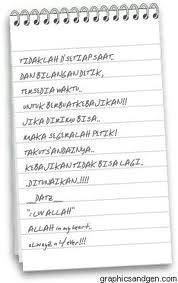 TIDAKLAH D'SETIAP SAAT..
DAN BILANGAN DETIK,
TERSEDIA WAKTU..
UNTUK BERBUAT KEBAJIKAN!!
JIKA DIRIMU BISA..
MAKA SEGERALAH PETIK!
TAKUT SANDAINYA..
KEBAJIKAN TIDAK BISA LAGI..
DITUNAIKAN..!!!!
__DATZ__
"i LUV ALLAH"
ALLAH in my heart..
alwayz n 4 ever!!!
graphicsandgen.com